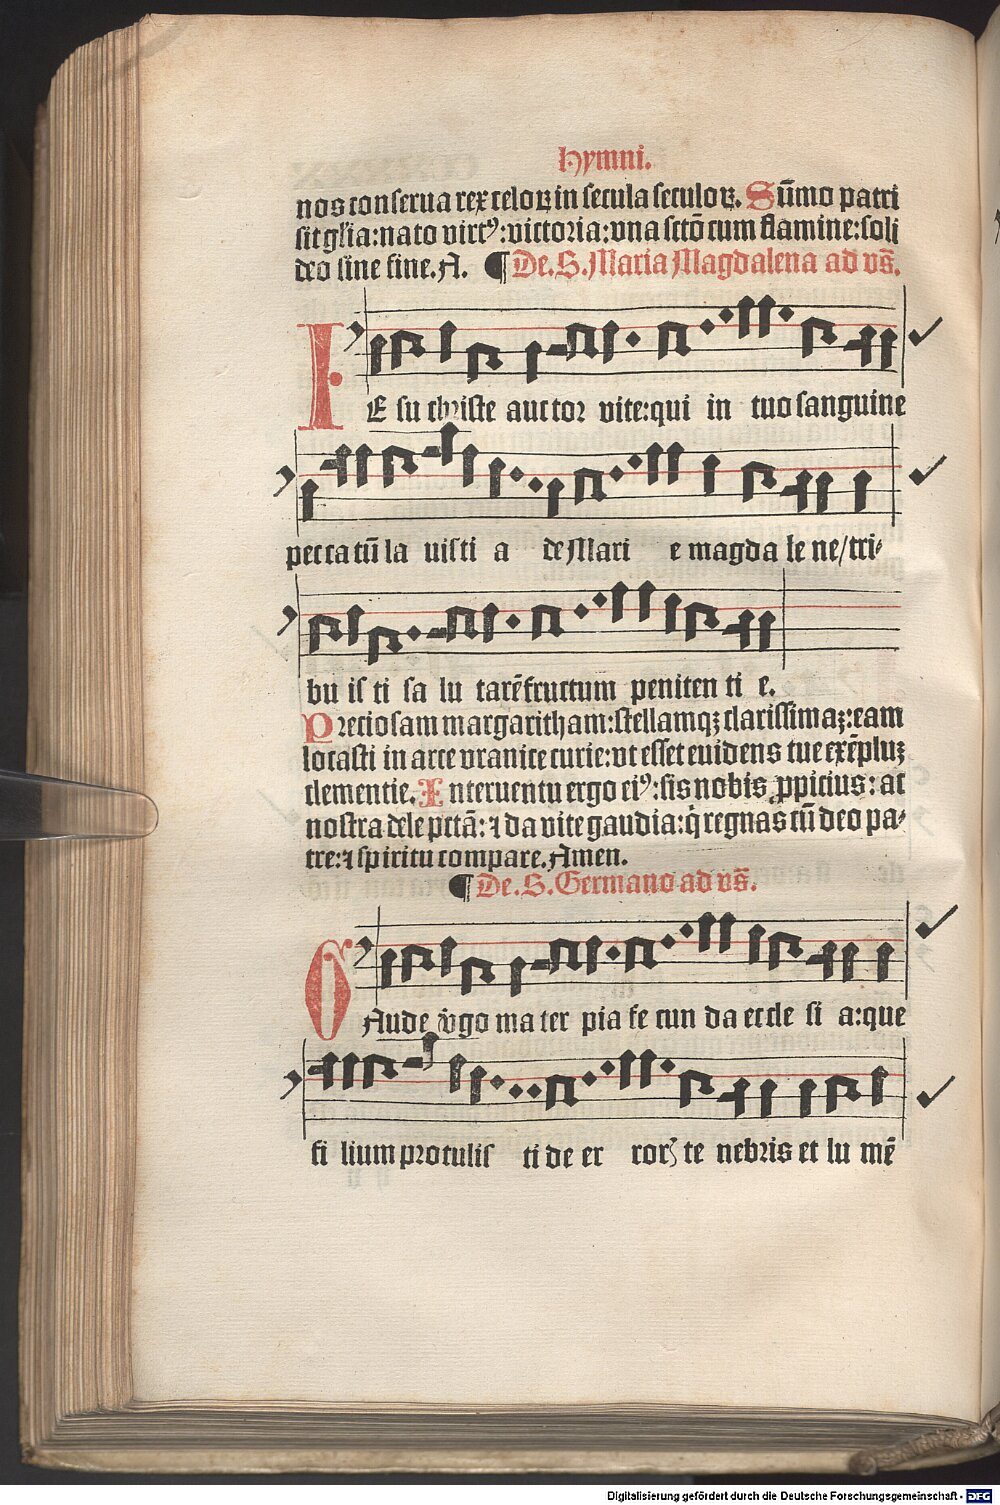 Hymni.
nos conserua rex celoꝝ in secula seculoꝝ. Sūmo patri
sit gl'ia: nato virtꝰ: victoria: vna sctō cum flamine: soli
deo sine fine. A. ¶ De. S. Maria Magdalena ad vs̄.
IE su christe auctor vite: qui in tuo sanguine
peccatū la uisti a de Mari e magda le ne/tri-
bu is ti sa lu tarē fructum peniten ti e.
Preciosam margaritham: stellamqꝫ clarissimaꝫ: eam
locasti in arce vranice curie: vt esset euidens tue exēpluꝫ
clementie. Interuentu ergo eiꝰ: sis nobis ꝓpicius: ac
nostra dele pctā: ⁊ da vite gaudia: q̇ regnas cū deo pa-
tre: ⁊ spiritu compare. Amen.
¶ De. S. Germano ad vs̄.
GAude v̇go ma ter pia fe cun da eccle si a: que
fi lium protulis ti de er roꝝ te nebris et lu mē
Digitalisierung gefördert durch die Deutsche Forschungsgemeinschaft - DFG